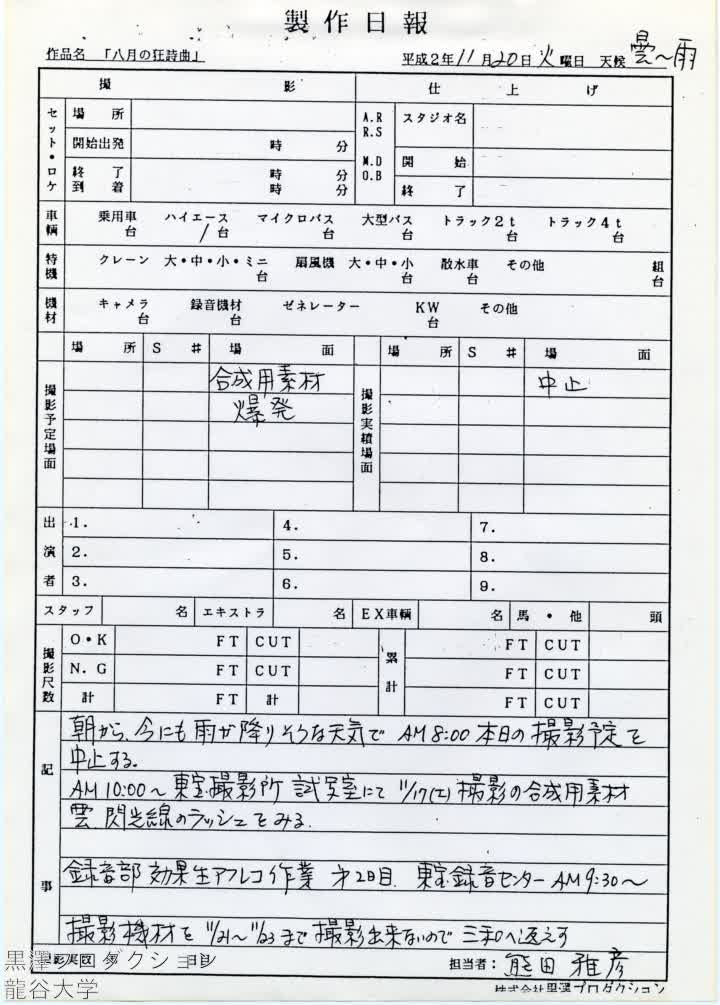 製作日報
作品名 「八月の狂詩曲」 平成2年11月20日火曜日 天候 雲〜雨
撮影 仕上げ
セット・ロケ 場所 A.R R.S スタジオ名
開始出発 時 分 M.D O.B 開始
終了到着 時 分 時 分 終了
車輌 乗用車 台 ハイエース /台 マイクロバス 台 大型バス 台 トラック2t 台 トラック4t 台
特機 クレーン 大・中・小・ミニ 台 扇風機 大・中・小 台 散水車 台 その他 組 台
機材 キャメラ 台 録音機材 台 ゼネレーター KW 台 その他
場所 S # 場面 場所 S # 場面
撮影予定場面 合成用素材 撮影実績場面 中止
爆発
出演者 1. 4. 7.
2. 5. 8.
3. 6. 9.
スタッフ 名 エキストラ 名 EX車輌 名 馬・他 頭
撮影尺数 O・K FT CUT 累計 FT CUT
N.G FT CUT FT CUT
計 FT 計 FT CUT
記事
朝から、今にも雨が降りそうな天気で AM 8:00 本日の撮影予定を
中止する。
AM 10:00〜 東宝撮影所 試写室にて 11/17(土) 撮影の合成用素材
雲 閃光線のラッシュをみる.
録音部 効果生アフレコ作業 才2日目. 東宝録音センター AM 9:30〜
撮影機材を 11/21〜11/23まで撮影出来ないので 三和へ返えす
担当者: 熊田雅彦
株式会社黒澤プロダクション
黒澤プロダクション
龍谷大学